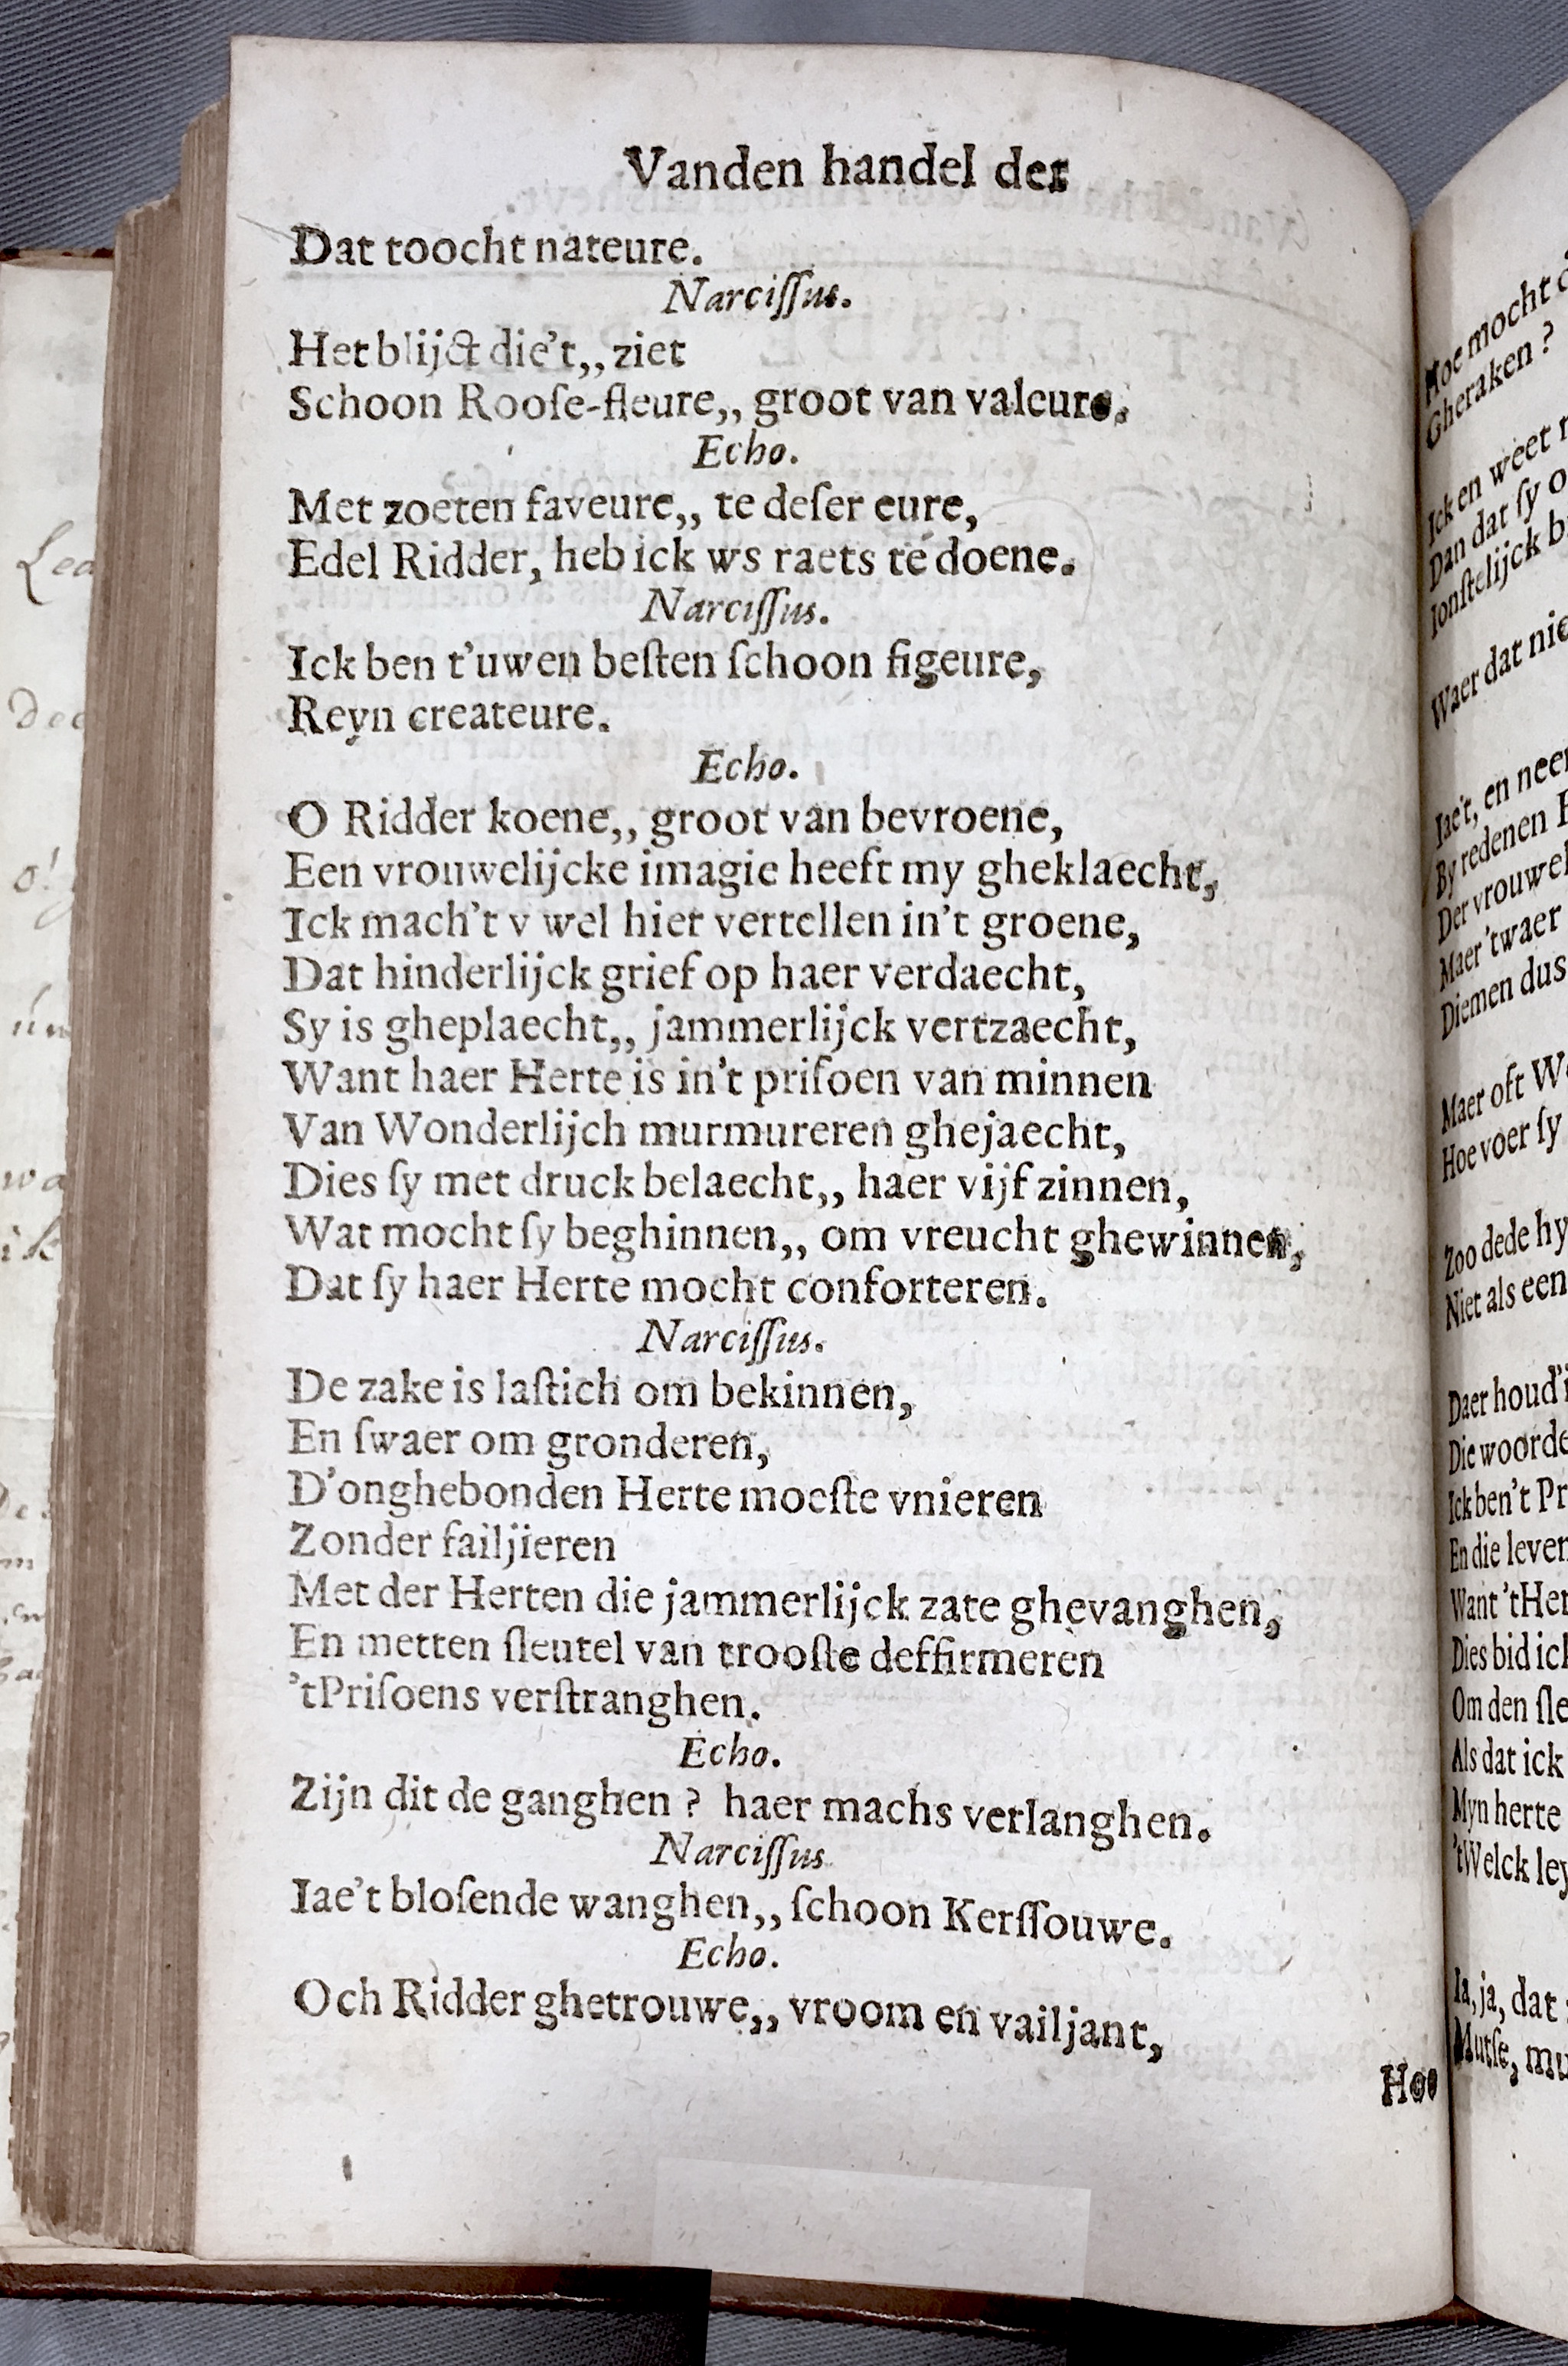 Vanden handel der
Dat toocht nateure.
Narciſſus.
Het blijct die't,, ziet
Schoon Rooſe-fleure,, groot van valeure.
Echo.
Met zoeten faveure,, te deſer eure,
Edel Ridder, heb ick ws raets te doene.
Narciſſus.
Ick ben t'uwen beſten ſchoon figeure,
Reyn createure.
Echo.
O Ridder koene,, groot van bevroene,
Een vrouwelijcke imagie heeft my gheklaecht,
Ick mach't v wel hier vertellen in't groene,
Dat hinderlijck grief op haer verdaecht,
Sy is gheplaecht,, jammerlijck vertzaecht,
Want haer Herte is in't priſoen van minnen
Van Wonderlijch murmureren ghejaecht,
Dies ſy met druck belaecht,, haer vijf zinnen,
Wat mocht ſy beghinnen,, om vreucht ghewinnen,
Dat ſy haer Herte mocht conforteren.
Narciſſus.
De zake is laſtich om bekinnen,
En ſwaer om gronderen,
D'onghebonden Herte moeſte vnieren
Zonder failjieren
Met der Herten die jammerlijck zate ghevanghen,
En metten ſleutel van trooſte deffirmeren
'tPriſoens verſtranghen.
Echo.
Zijn dit de ganghen ? haer machs verlanghen.
Narciſſus
Iae't bloſende wanghen,, ſchoon Kerſſouwe.
Echo.
Och Ridder ghetrouwe,, vroom en vailjant,
Hoe
Hoe mocht
Gheraken ?
Ick en weet
Dan dat ſy
Ionſtelijck
Waer dat
Iae't, en
By redenen
Maer 'twaer
Diemen dus
Maer oft
Hoe voer ſy
Zoo dede hy
Niet als een
Daer
Ick ben't
En die
Want
Dies bid
Om den
Als dat ick
Myn herte
'tWelck
Ia, ja, dat
Mutſe,